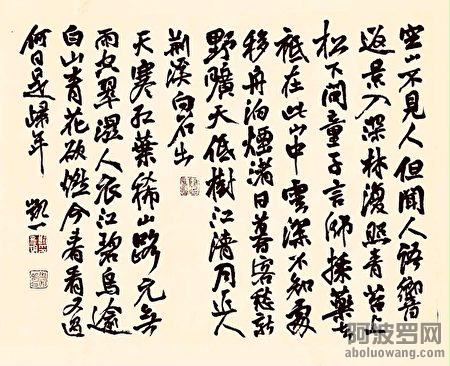 空山不見人但聞人語響
返景入深林復照青苔上
松下問童子言師採藥去
祗在此山中雲深不知處
移舟泊煙渚日暮客愁新
野曠天低樹江清月近人
荆溪白石出
天寒紅葉稀山路元無
雨空翠濕人衣江碧鳥逾
白山青花欲燃今春看又過
何日是歸年 凱一
阿波罗网
aboluowang.com